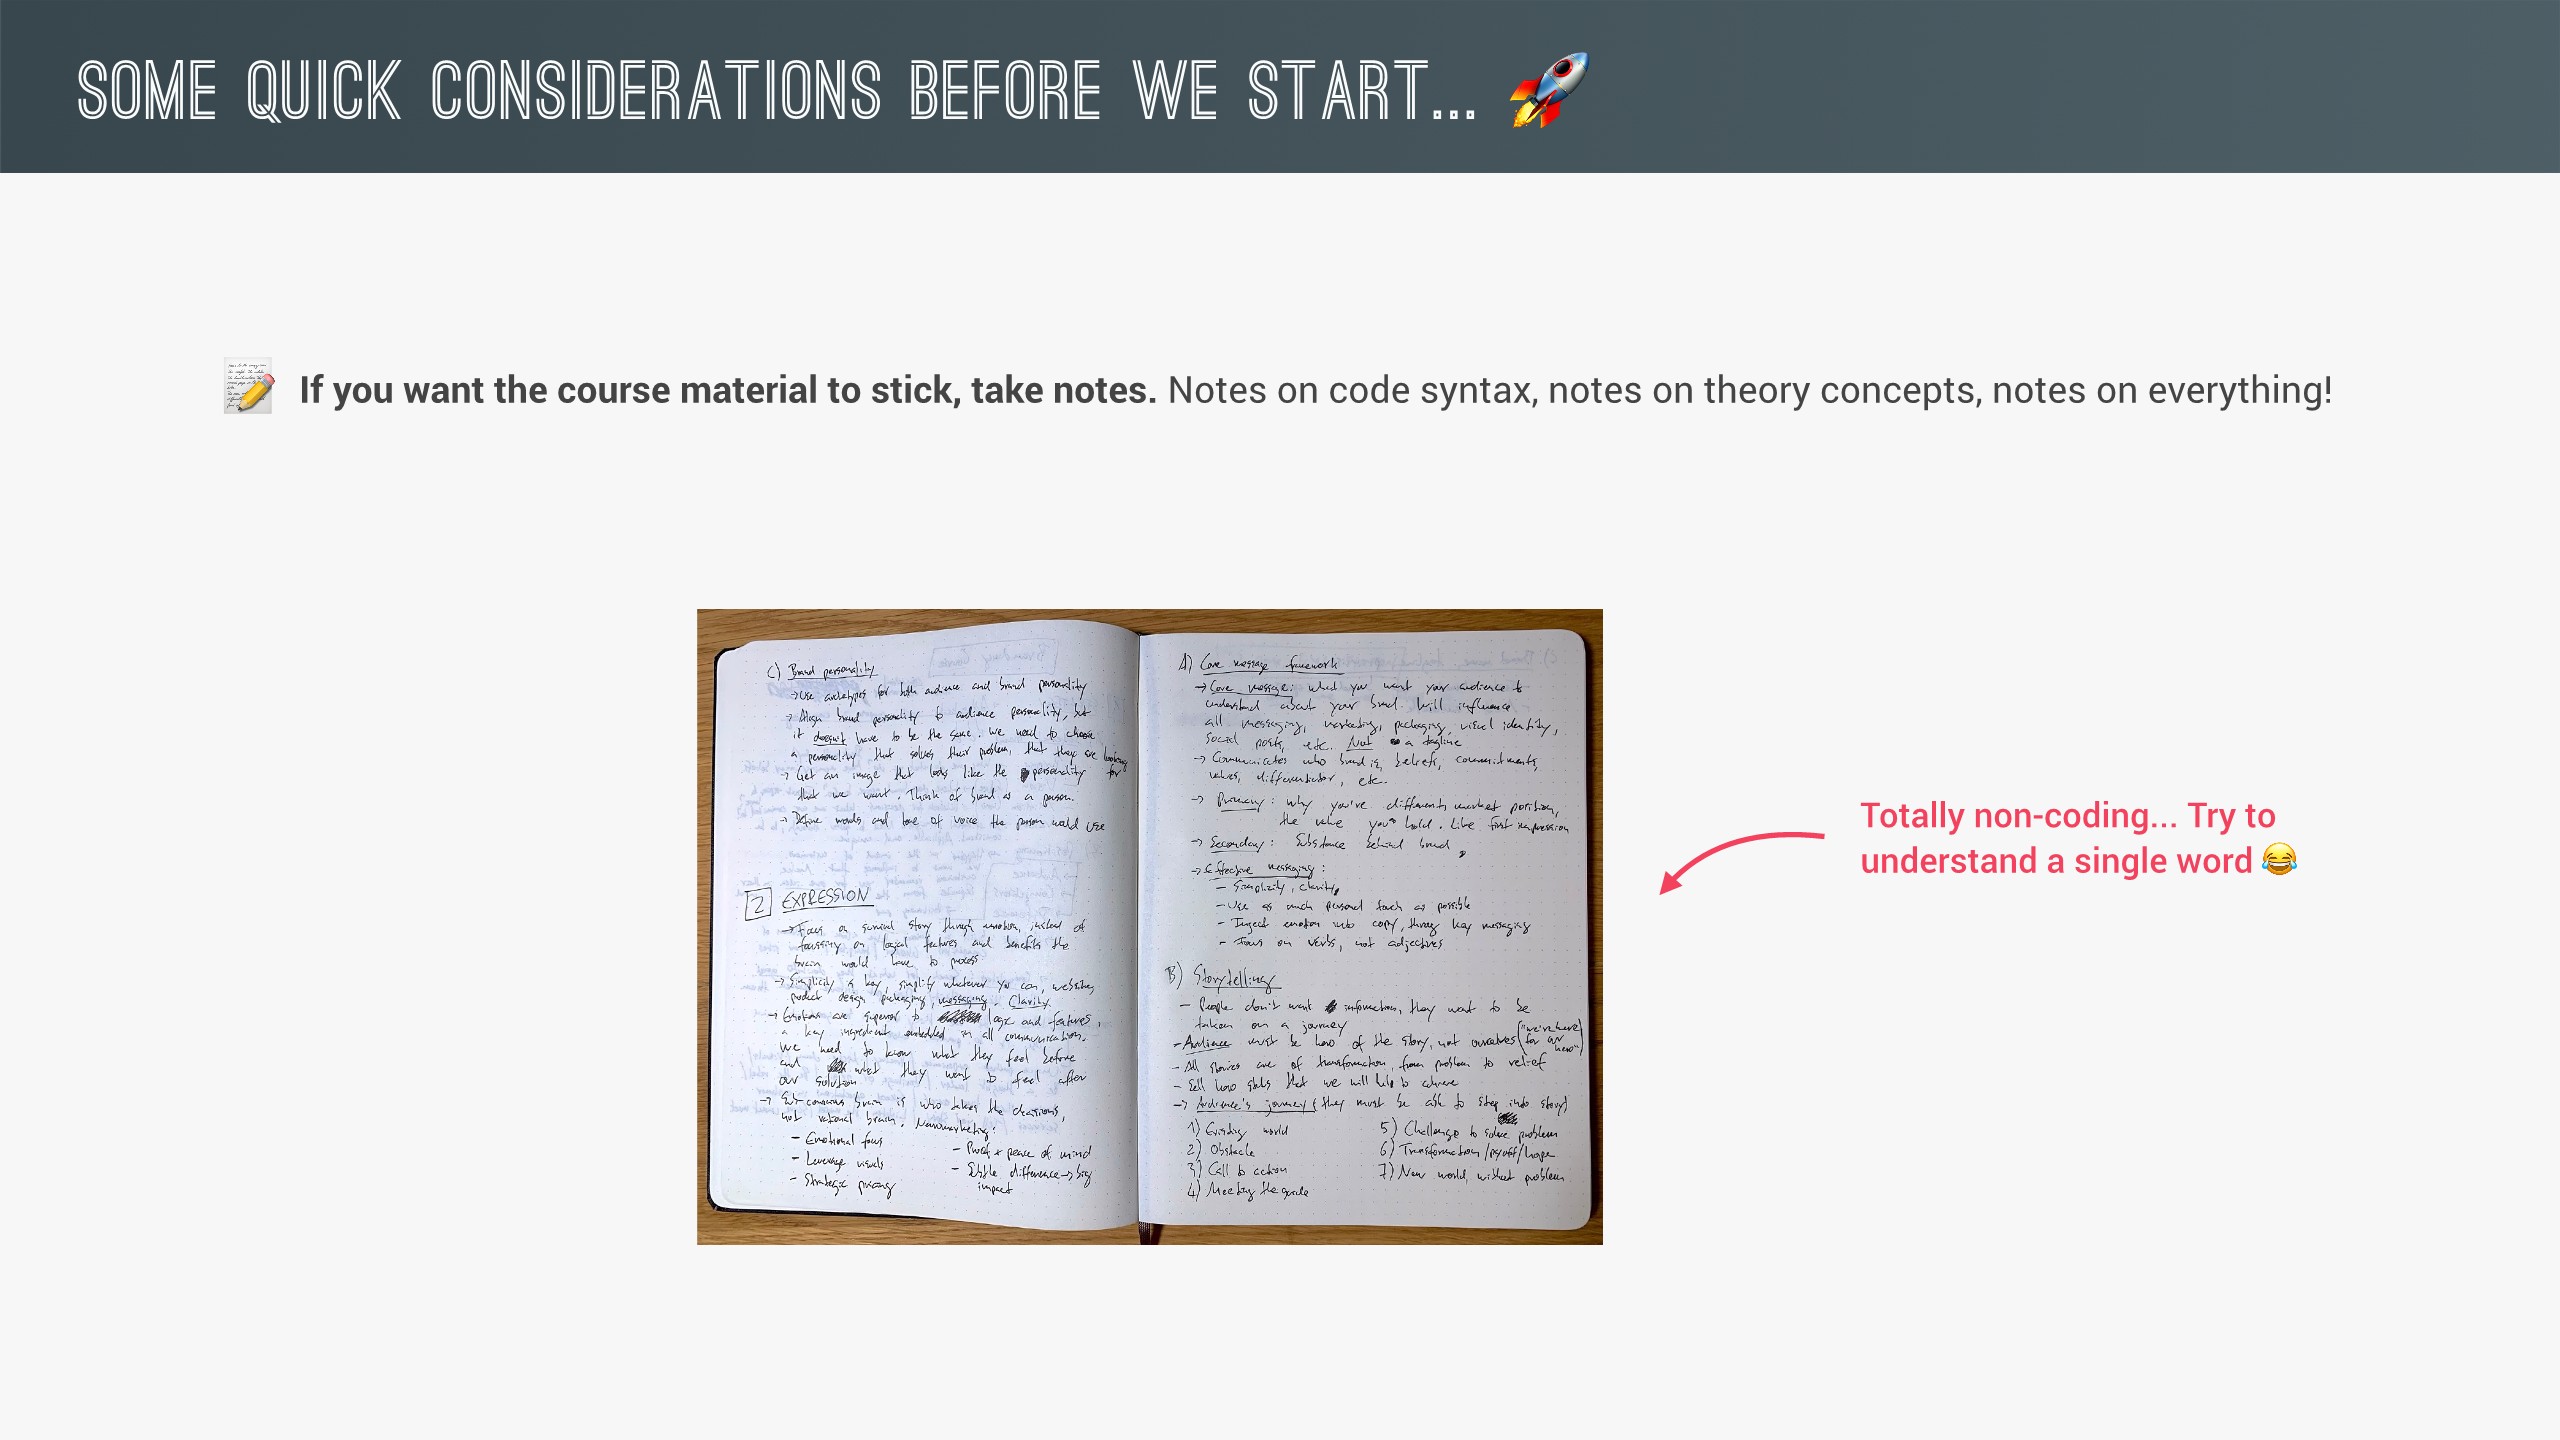 SOME QUICK CONSIDERATIONS BEFORE WE START... 🚀
If you want the course material to stick, take notes. Notes on code syntax, notes on theory concepts, notes on everything!
C) Brand personality
→ Use archetypes for both audience and brand personality
→ Align brand personality to audience personality, but
it doesn't have to be the same. We need to choose
a personality that solves their problem, that they are looking
→ Get an image that looks like the personality for
that we want. Think of brand as a person.
→ Define words and tone of voice the person would use
2 EXPRESSION
→ Focus on survival story through emotion, instead of
focussing on logical features and benefits the
brain would have to process
→ Simplicity is key, simplify whatever you can, website,
product design, packaging, messaging. Clarity.
→ Emotions are superior to logic and features,
a key ingredient embedded in all communication.
We need to know what they feel before
and what they want to feel after
our solution
→ Sub-conscious brain is who takes the decisions,
not rational brain. Neuromarketing:
- Emotional focus
- Leverage visuals
- Strategic pricing
- Proof + peace of mind
- Subtle difference → big
impact
A) Core message framework
→ Core message: what you want your audience to
understand about your brand. Will influence
all messaging, marketing, packaging, visual identity,
social posts, etc. Not a tagline
→ Communicates who brand is, beliefs, commitments,
values, differentiator, etc.
→ Primary: Why you're different, market position,
the value you hold. Like first impression
→ Secondary: Substance behind brand
→ Effective messaging:
- Simplicity, clarity
- Use as much personal touch as possible
- Inject emotion into copy, through key messaging
- Focus on verbs, not adjectives
B) Storytelling
- People don't want information, they want to be
taken on a journey
- Audience must be hero of the story, not ourselves ("we're here
for our
hero")
- All stories are of transformation, from problem to relief
- Sell how that we will help to achieve
→ Audience's journey (they must be able to step into story)
1) Existing world
2) Obstacle
3) Call to action
4) Meeting the guide
5) Challenge to solve problem
6) Transformation/payoff/hope
7) New world, without problem
Totally non-coding... Try to
understand a single word 😂